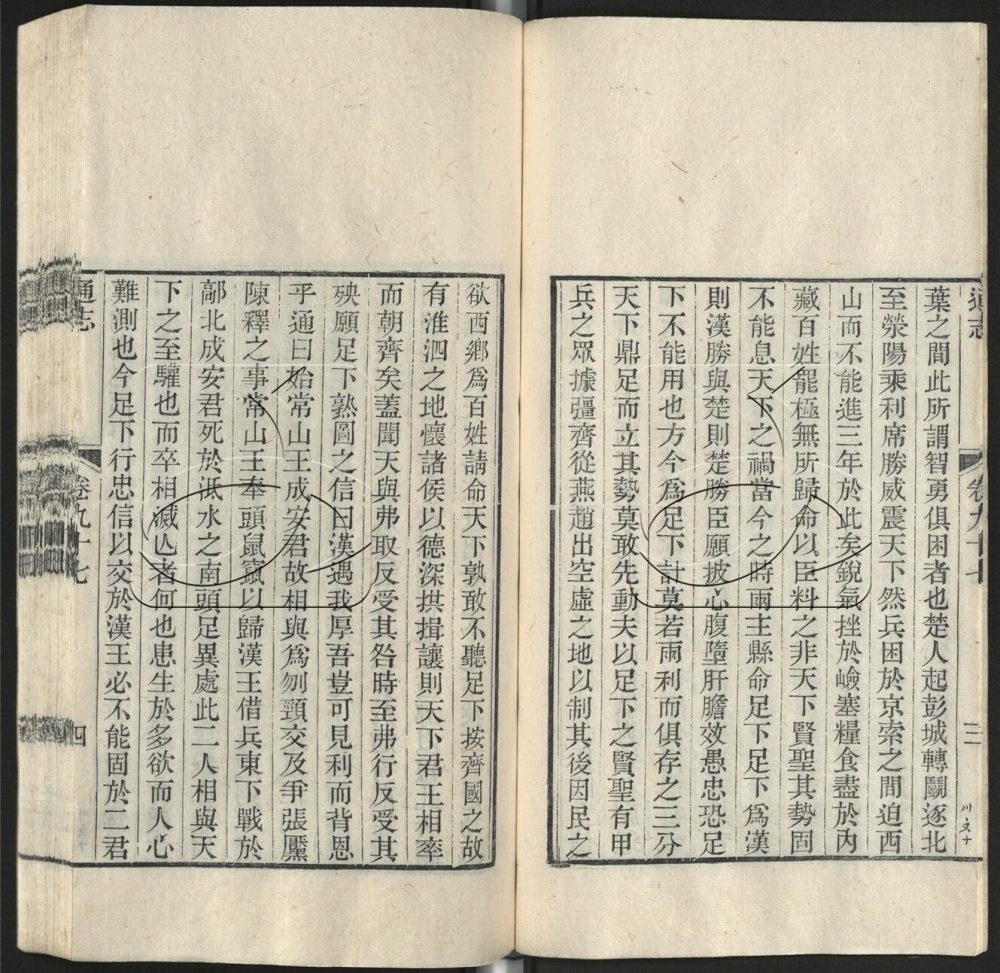 通志
卷九十七
三
川文十
葉之間此所謂智勇俱困者也楚人起彭城轉鬭逐北
至滎陽乘利席勝威震天下然兵困於京索之間迫西
山而不能進三年於此矣銳氣挫於嶮塞糧食盡於內
藏百姓罷極無所歸命以臣料之非天下賢聖其勢固
不能息天下之禍當今之時兩主縣命足下足下為漢
則漢勝與楚則楚勝臣願披心腹墮肝膽效愚忠恐足
下不能用也方今為足下計莫若兩利而俱存之三分
天下鼎足而立其勢莫敢先動夫以足下之賢聖有甲
兵之眾據彊齊從燕趙出空虛之地以制其後因民之
欲西鄉為百姓請命天下孰敢不聽足下按齊國之故
有淮泗之地懷諸侯以德深拱揖讓則天下君王相率
而朝齊矣蓋聞天與弗取反受其咎時至弗行反受其
殃願足下熟圖之信曰漢遇我厚吾豈可見利而背恩
乎通曰始常山王成安君故相與為刎頸交及爭張黶
陳釋之事常山王奉頭鼠竄以歸漢王借兵東下戰於
鄗北成安君死於泜水之南頭足異處此二人相與天
下之至驩也而卒相滅亾者何也患生於多欲而人心
難測也今足下行忠信以交於漢王必不能固於二君
通志
卷九十七
四